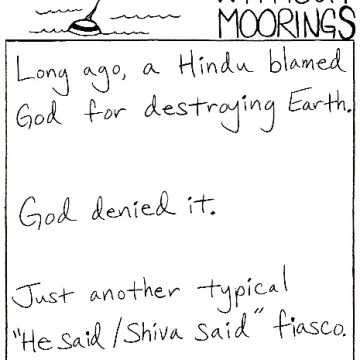 MOORINGS
Long ago, a Hindu blamed
God for destroying Earth.
God denied it.
Just another typical
"He said/Shiva said" fiasco.